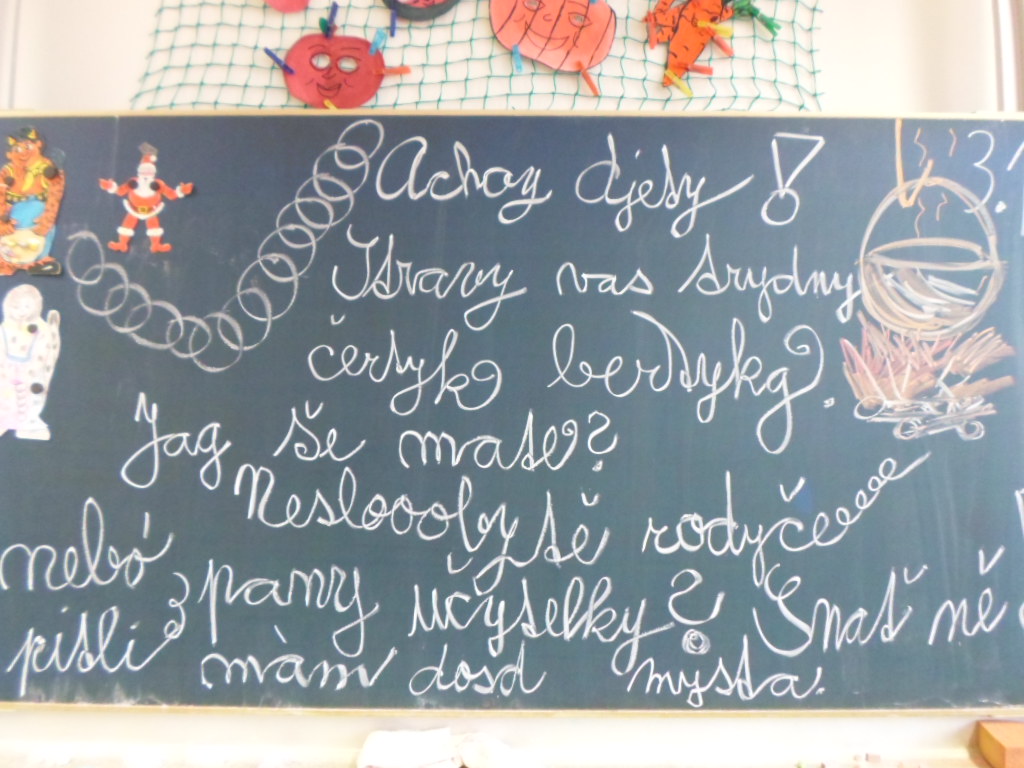 Achoy djety!
Ysravy vas srydny
čertyk berdykg?
Jag še mate?
Neslooobyště rodyčeeeee
nebó pany učyselky? Snaš ně
pitli mám dosd mysta.
3.